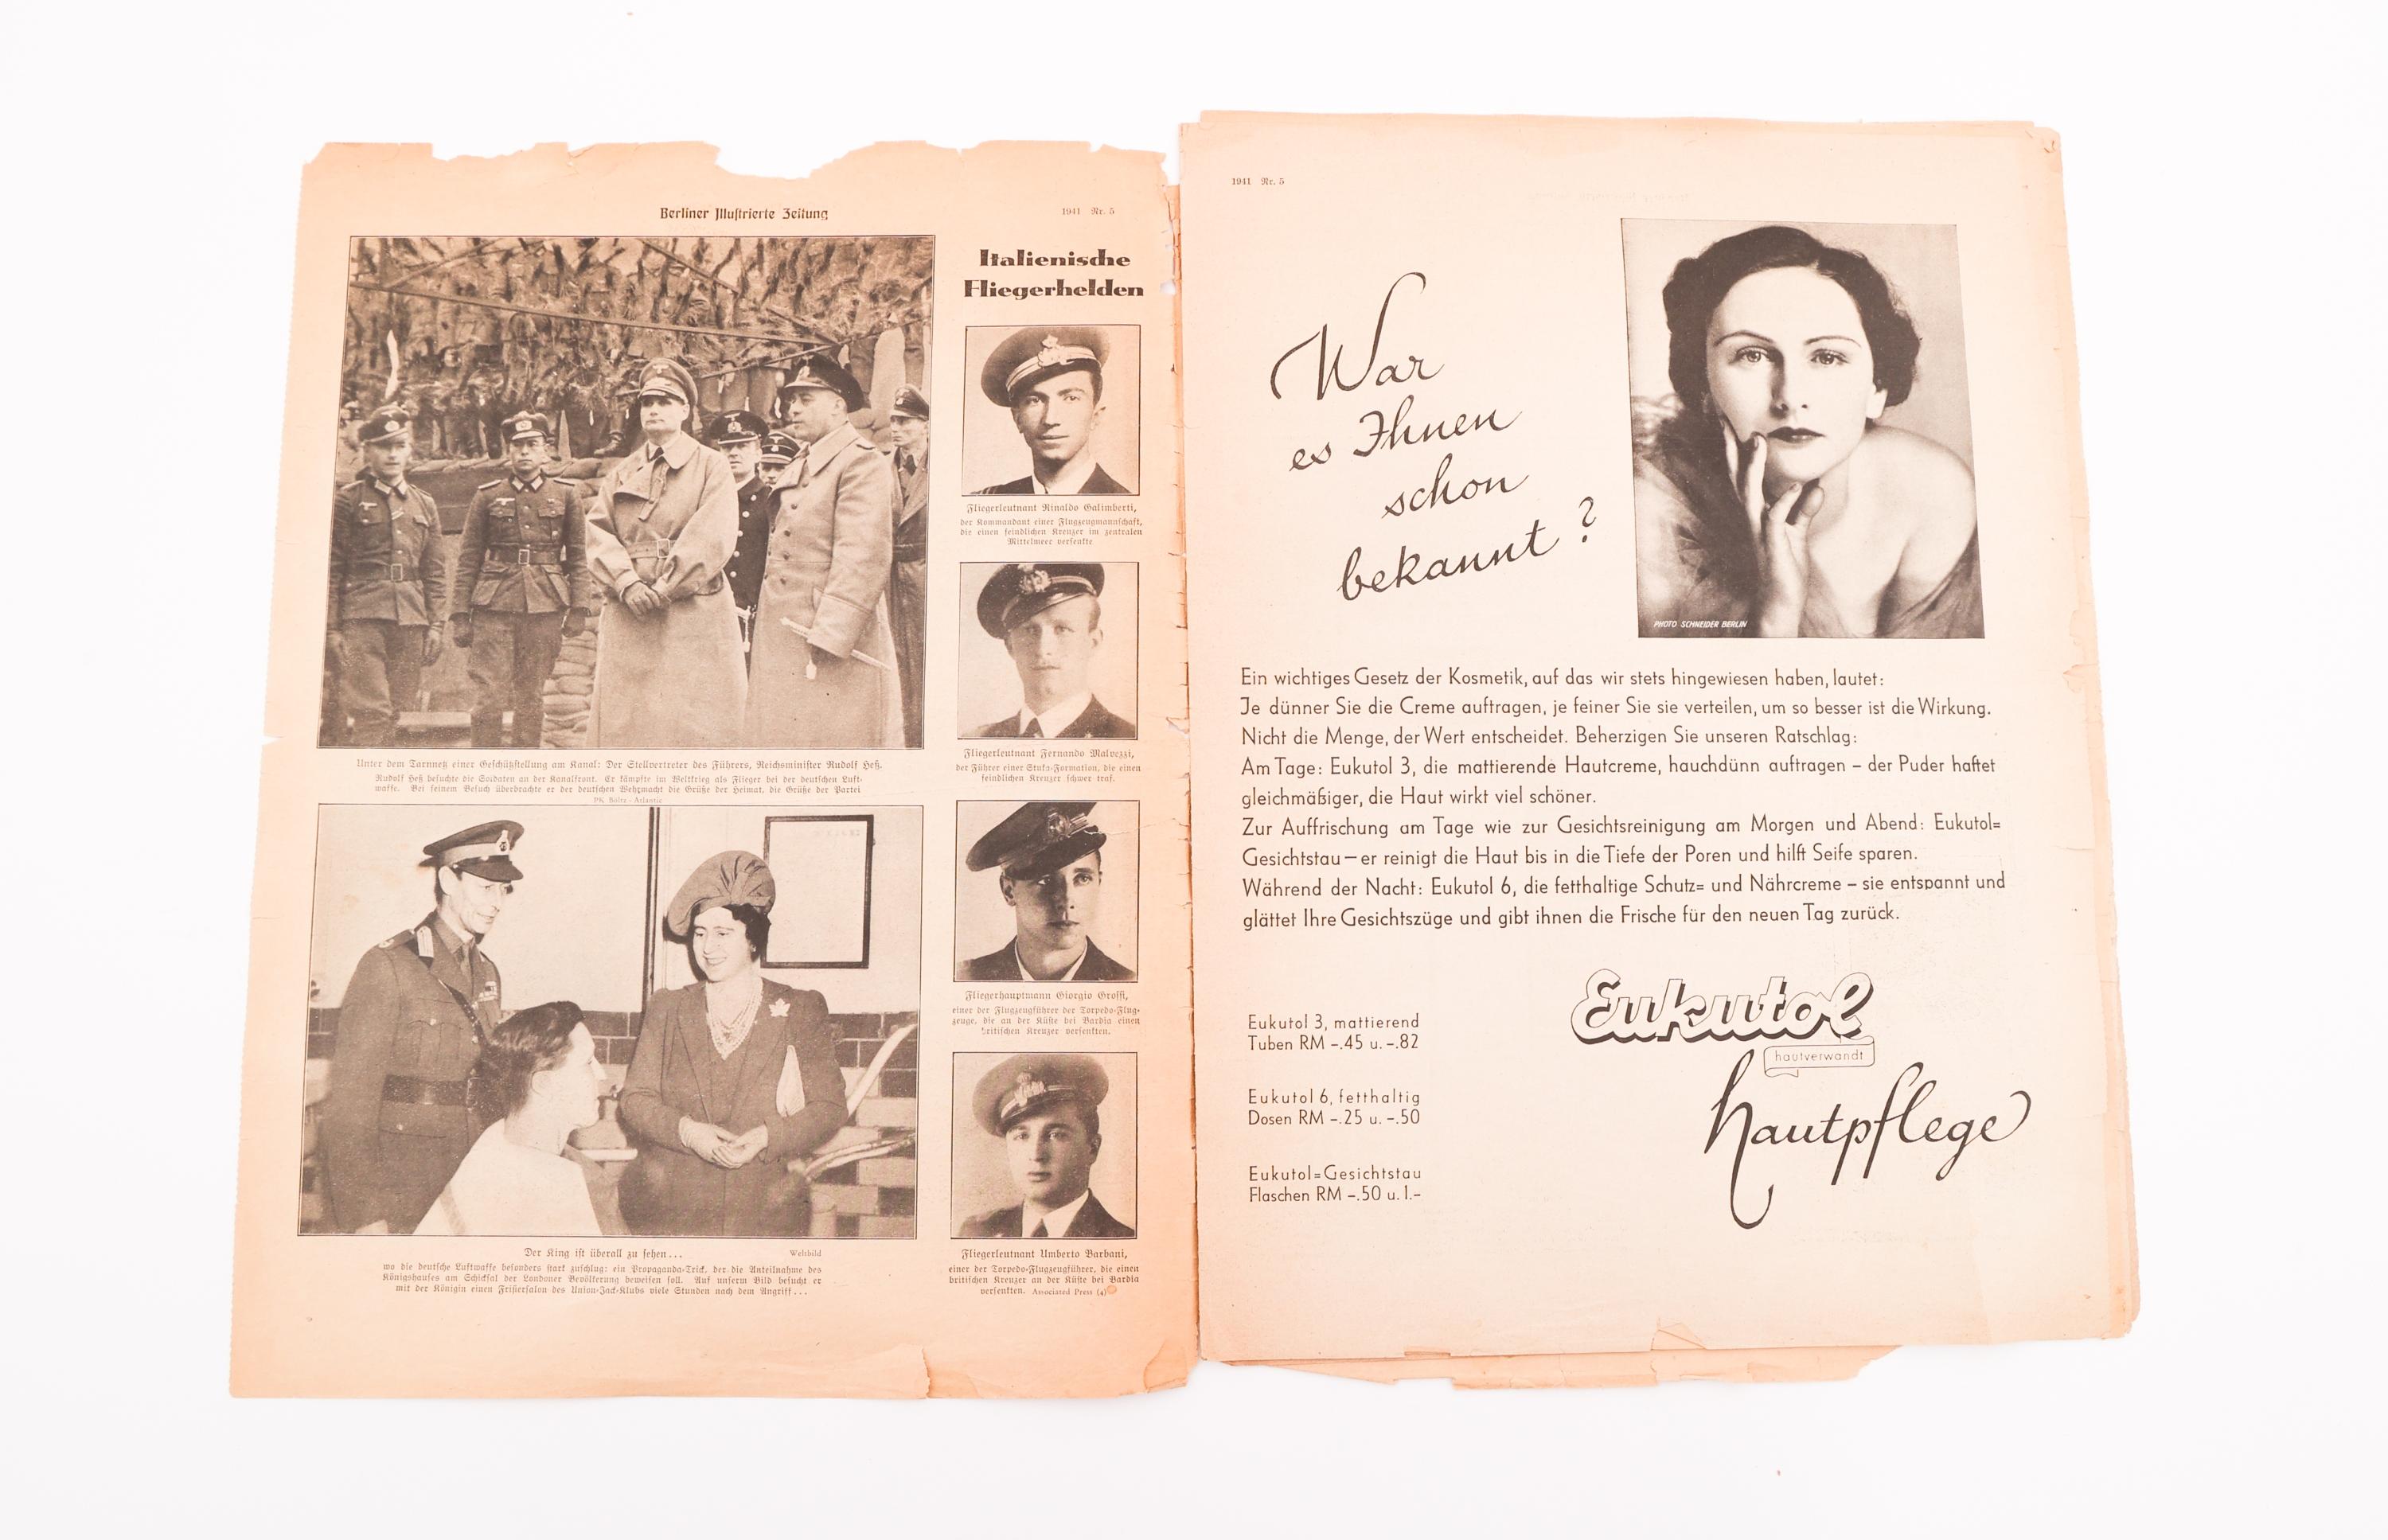 Berliner Illustrierte Zeitung
1941 Nr. 5
Unter dem Tarnnetz einer Geschützstellung am Kanal: Der Stellvertreter des Führers, Reichsminister Rudolf Heß.
Rudolf Heß besuchte die Soldaten an der Kanalfront. Er kämpfte im Weltkrieg als Flieger bei der deutschen Luft-
waffe. Bei seinem Besuch überbrachte er der deutschen Wehrmacht die Grüße der Heimat, die Grüße der Partei
PK. Boltz - Atlantic
Der King ist überall zu sehen ...
Weltbild
wo die deutsche Luftwaffe besonders stark zuschlug: ein Propaganda-Trick, der die Anteilnahme des
Königshauses am Schicksal der Londoner Bevölkerung beweisen soll. Auf unserm Bild besucht er
mit der Königin einen Frisiersalon des Union-Jack-Klubs viele Stunden nach dem Angriff ...
Italienische
Fliegerhelden
Fliegerleutnant Rinaldo Galimberti,
der Kommandant einer Flugzeugmannschaft,
die einen feindlichen Kreuzer im zentralen
Mittelmeer versenkte
Fliegerleutnant Fernando Malvezzi,
der Führer einer Stuka-Formation, die einen
feindlichen Kreuzer schwer traf.
Fliegerhauptmann Giorgio Grossi,
einer der Flugzeugführer der Torpedo-Flug-
zeuge, die an der Küste bei Bardia einen
britischen Kreuzer versenkten.
Fliegerleutnant Umberto Barbani,
einer der Torpedo-Flugzeugführer, die einen
britischen Kreuzer an der Küste bei Bardia
versenkten. Associated Press (4)
1941 Nr. 5
War
es Ihnen
schon
bekannt?
PHOTO SCHNEIDER BERLIN
Ein wichtiges Gesetz der Kosmetik, auf das wir stets hingewiesen haben, lautet:
Je dünner Sie die Creme auftragen, je feiner Sie sie verteilen, um so besser ist die Wirkung.
Nicht die Menge, der Wert entscheidet. Beherzigen Sie unseren Ratschlag:
Am Tage: Eukutol 3, die mattierende Hautcreme, hauchdünn auftragen – der Puder haftet
gleichmäßiger, die Haut wirkt viel schöner.
Zur Auffrischung am Tage wie zur Gesichtsreinigung am Morgen und Abend: Eukutol=
Gesichtstau – er reinigt die Haut bis in die Tiefe der Poren und hilft Seife sparen.
Während der Nacht: Eukutol 6, die fetthaltige Schutz= und Nährcreme – sie entspannt und
glättet Ihre Gesichtszüge und gibt ihnen die Frische für den neuen Tag zurück.
Eukutol 3, mattierend
Tuben RM –.45 u. –.82
Eukutol 6, fetthaltig
Dosen RM –.25 u. –.50
Eukutol=Gesichtstau
Flaschen RM –.50 u. 1.–
Eukutol
hautverwandt
Hautpflege